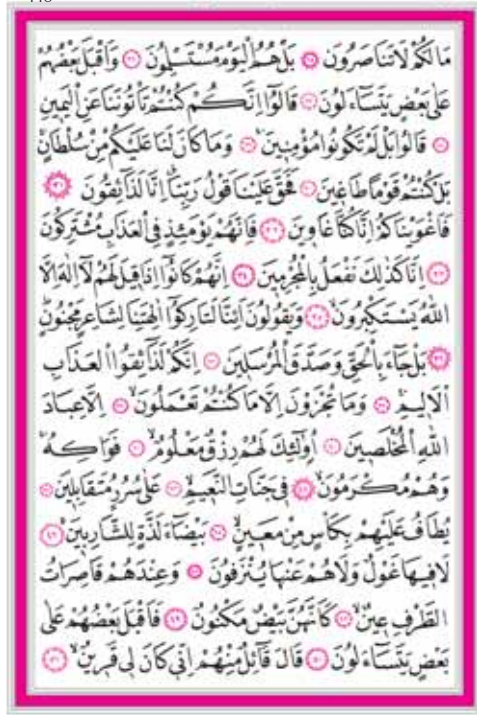 مَا لَكُمْ لَا تَنَاصَرُونَ ﴿٢٥﴾ بَلْ هُمُ الْيَوْمَ مُسْتَسْلِمُونَ ﴿٢٦﴾ وَاَقْبَلَ بَعْضُهُمْ
عَلٰى بَعْضٍ يَتَسَٓاءَلُونَ ﴿٢٧﴾ قَالُٓوا اِنَّكُمْ كُنْتُمْ تَأْتُونَنَا عَنِ الْيَمٖينِ
﴿٢٨﴾ قَالُوا بَلْ لَمْ تَكُونُوا مُؤْمِنٖينَ ﴿٢٩﴾ وَمَا كَانَ لَنَا عَلَيْكُمْ مِنْ سُلْطَانٍ
بَلْ كُنْتُمْ قَوْمًا طَاغٖينَ ﴿٣٠﴾ فَحَقَّ عَلَيْنَا قَوْلُ رَبِّنَا اِنَّا لَذَٓائِقُونَ ﴿٣١﴾
فَاَغْوَيْنَاكُمْ اِنَّا كُنَّا غَاوٖينَ ﴿٣٢﴾ فَاِنَّهُمْ يَوْمَئِذٍ فِي الْعَذَابِ مُشْتَرِكُونَ
﴿٣٣﴾ اِنَّا كَذٰلِكَ نَفْعَلُ بِالْمُجْرِمٖينَ ﴿٣٤﴾ اِنَّهُمْ كَانُٓوا اِذَا قٖيلَ لَهُمْ لَٓا اِلٰهَ اِلَّا
اللّٰهُ يَسْتَكْبِرُونَ ﴿٣٥﴾ وَيَقُولُونَ اَئِنَّا لَتَارِكُٓوا اٰلِهَتِنَا لِشَاعِرٍ مَجْنُونٍ
﴿٣٦﴾ بَلْ جَٓاءَ بِالْحَقِّ وَصَدَّقَ الْمُرْسَلٖينَ ﴿٣٧﴾ اِنَّكُمْ لَذَٓائِقُوا الْعَذَابِ
الْاَلٖيمِ ﴿٣٨﴾ وَمَا تُجْزَوْنَ اِلَّا مَا كُنْتُمْ تَعْمَلُونَ ﴿٣٩﴾ اِلَّا عِبَادَ
اللّٰهِ الْمُخْلَصٖينَ ﴿٤٠﴾ اُولٰٓئِكَ لَهُمْ رِزْقٌ مَعْلُومٌ ﴿٤١﴾ فَوَاكِهُ
وَهُمْ مُكْرَمُونَ ﴿٤٢﴾ فٖي جَنَّاتِ النَّعٖيمِ ﴿٤٣﴾ عَلٰى سُرُرٍ مُتَقَابِلٖينَ ﴿٤٤﴾
يُطَافُ عَلَيْهِمْ بِكَأْسٍ مِنْ مَعٖينٍ ﴿٤٥﴾ بَيْضَٓاءَ لَذَّةٍ لِلشَّارِبٖينَ ﴿٤٦﴾
لَا فٖيهَا غَوْلٌ وَلَا هُمْ عَنْهَا يُنْزَفُونَ ﴿٤٧﴾ وَعِنْدَهُمْ قَاصِرَاتُ
الطَّرْفِ عٖينٌ ﴿٤٨﴾ كَاَنَّهُنَّ بَيْضٌ مَكْنُونٌ ﴿٤٩﴾ فَاَقْبَلَ بَعْضُهُمْ عَلٰى
بَعْضٍ يَتَسَٓاءَلُونَ ﴿٥٠﴾ قَالَ قَٓائِلٌ مِنْهُمْ اِنّٖي كَانَ لٖي قَرٖينٌ ﴿٥١﴾